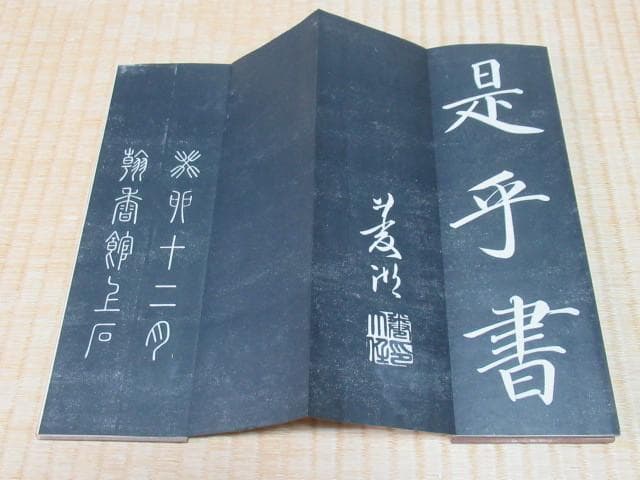 是乎書
菱湖
癸卯十二月
翰香館上石